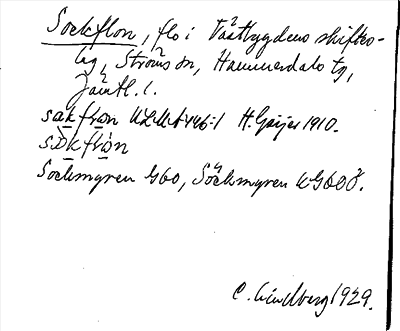 Sockflon, flo i Tåsbygdens skifts-
lag, Ströms sn, Hammerdals tg,
Jämtl. l.
sɑkfrɷn ULMA 446:1 H. Geijer 1910.
sɷkfrɷ̀n
Sockmyren G60, Sockmyren UG60Ö.
C. Lindberg 1929.